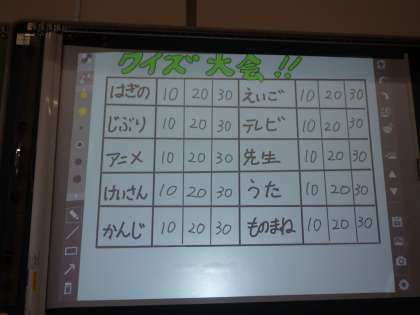 クイズ大会!!
はぎの 10 20 30 えいご 10 20 30
じぶり 10 20 30 テレビ 10 20 30
アニメ 10 20 30 先生 10 20 30
けいさん 10 20 30 うた 10 20 30
かんじ 10 20 30 ものまね 10 20 30